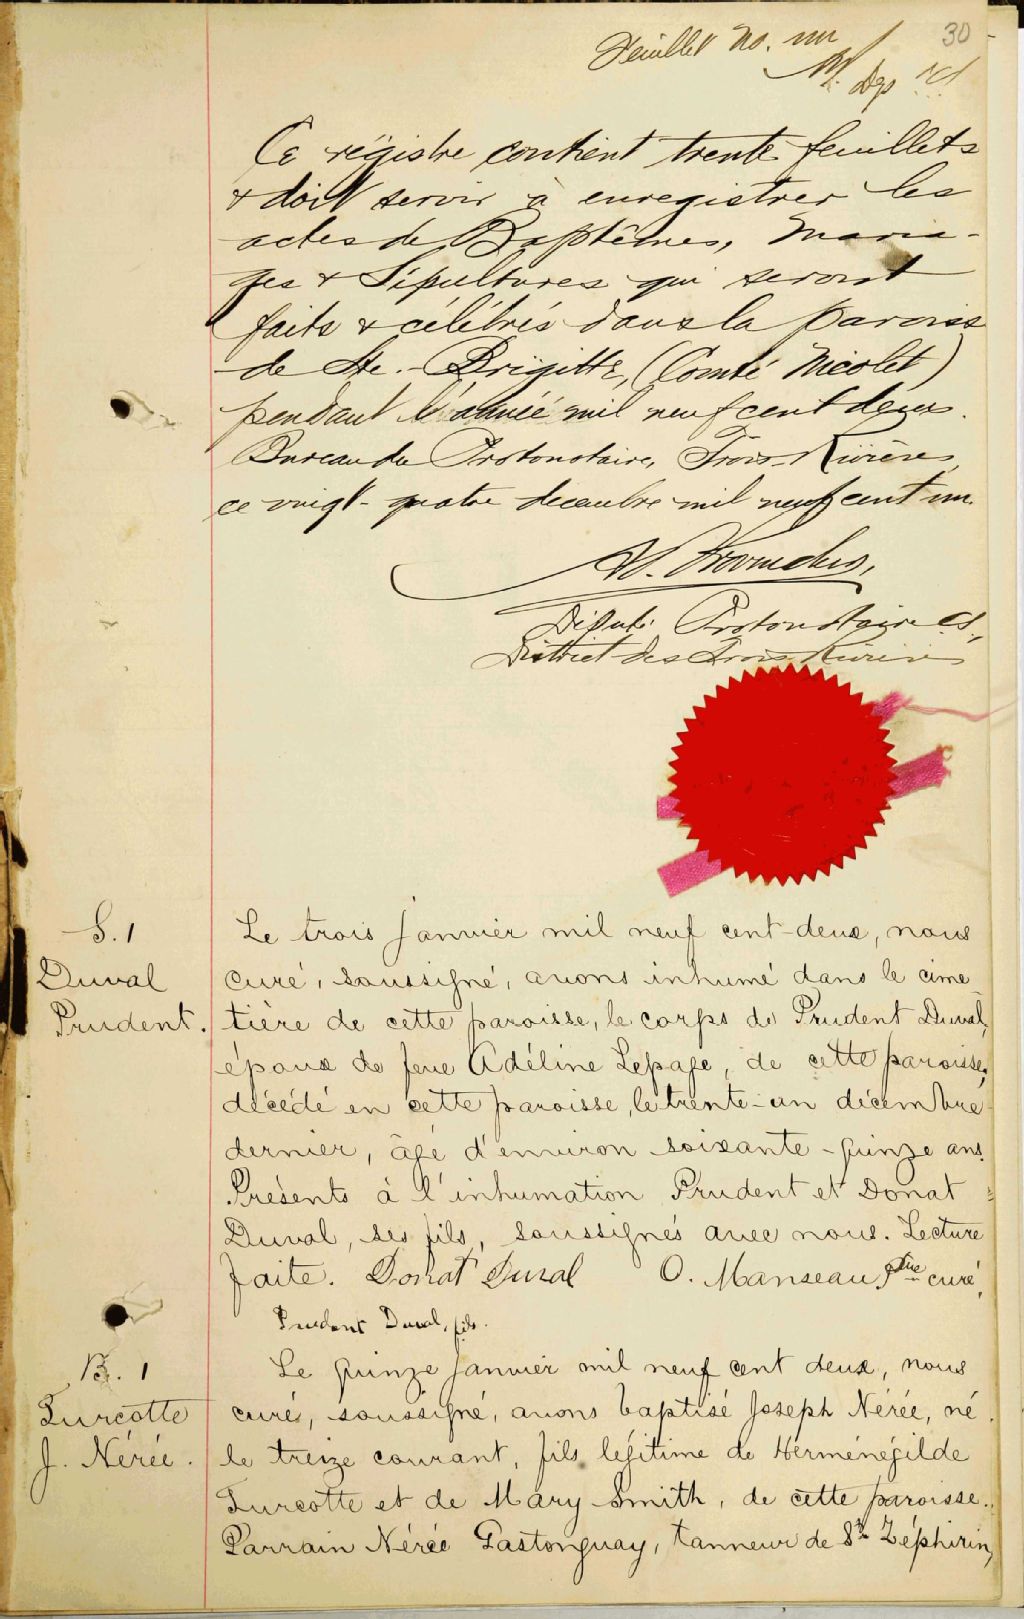 30
Feuillet No. un
Dep
Ce régistre contient trente feuillets
& doit servir à enregistrer les
actes de Baptêmes, Maria-
ges & Sépultures qui seront
faits & célébrés dans la paroisse
de Ste.-Brigitte, (Comté Nicolet)
pendant l'année mil neuf cent deux.
Bureau du Protonotaire, Trois-Rivières,
ce vingt-quatre décembre mil neuf cent un.
Député Protonotaire C.S.
District des Trois Rivières
S. 1
Duval
Prudent.
Le trois janvier mil neuf cent-deux, nous
curé, soussigné, avons inhumé dans le cime
tière de cette paroisse, le corps de Prudent Duval,
époux de feue Adéline Lepage, de cette paroisse,
décédé en cette paroisse, le trente-un décembre
dernier, âgé d'environ soixante-quinze ans.
Présents à l'inhumation Prudent et Donat
Duval, ses fils, soussignés avec nous. Lecture
faite. Donat Duval O. Manseau Ptre curé,
Prudent Duval, fils.
B. 1
Turcotte
J. Nérée.
Le quinze janvier mil neuf cent deux, nous
curé, soussigné, avons baptisé Joseph Nérée, né
le treize courant, fils légitime de Herménégilde
Turcotte et de Mary Smith, de cette paroisse.
Parrain Nérée Pastonguay, tanneur de St Zéphirin,